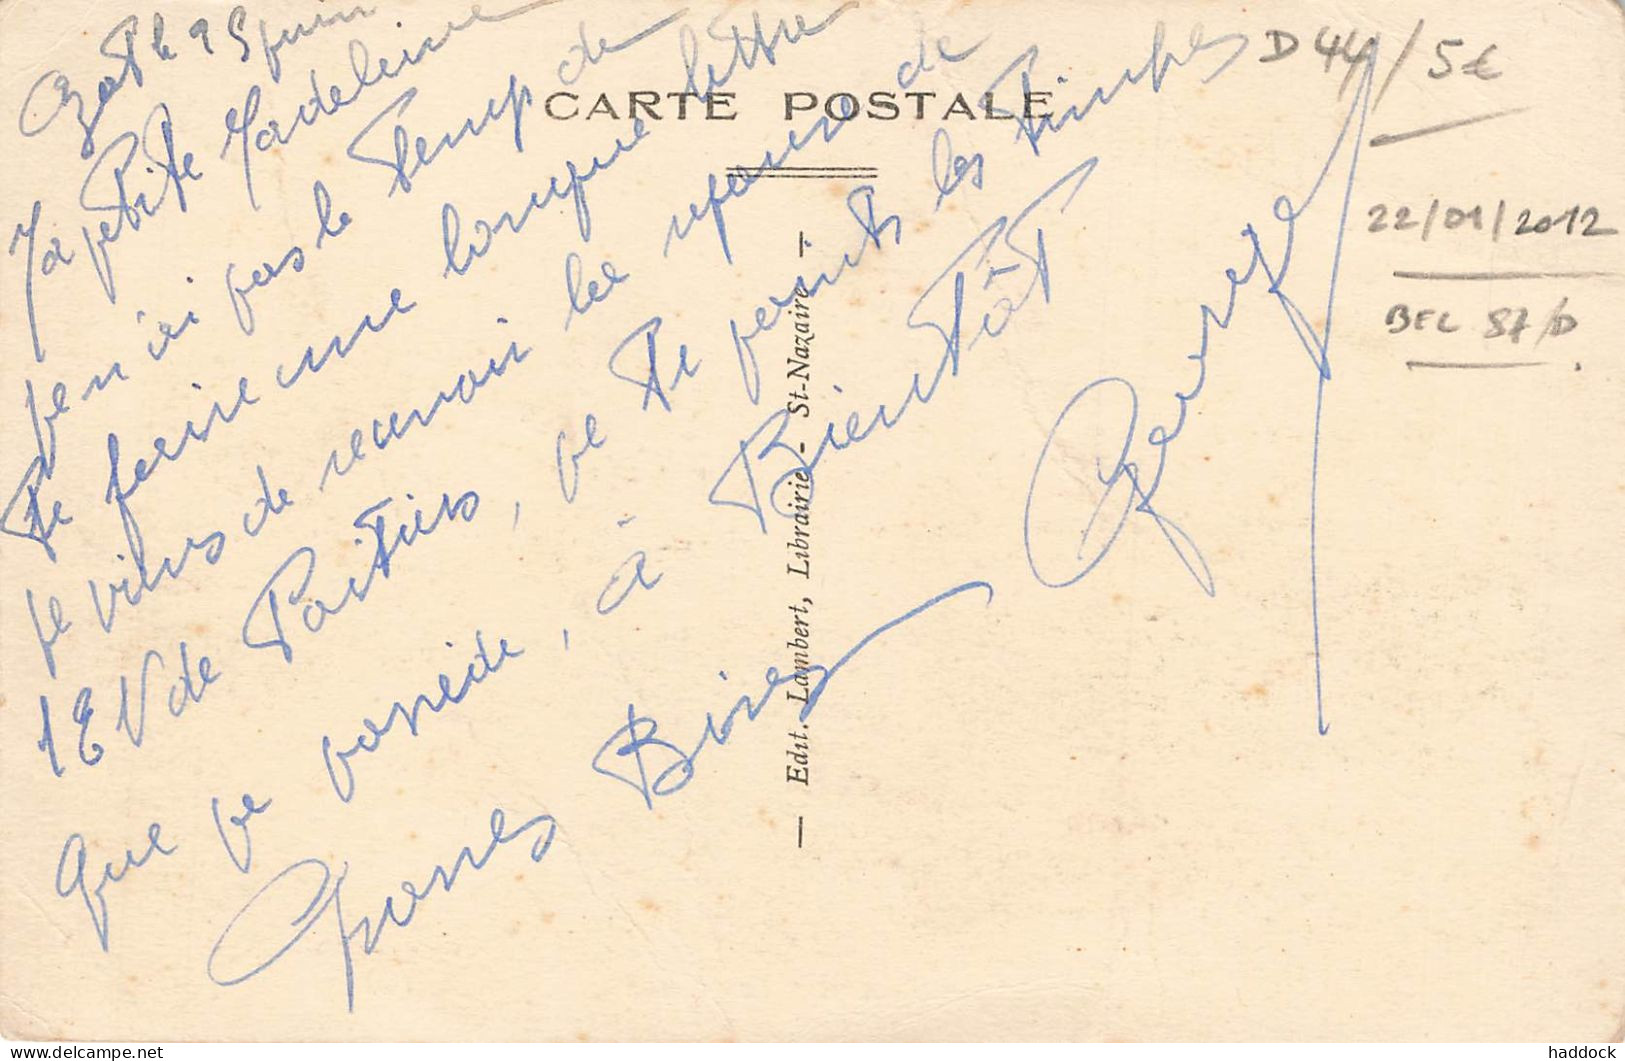 le 25 juin
Ma petite Madeleine
je n'ai pas le temps de
te faire une longue lettre
je viens de recevoir les réponse de
1 E V de Poitiers, je te joints les timbres
que je possède, à Bientôt
Grosses Bises
Georges
CARTE POSTALE
— Edit. Lambert, Librairie - St-Nazaire —
D 44 / 5€
22/01/2012
BEL 87/D
delcampe.net
haddock